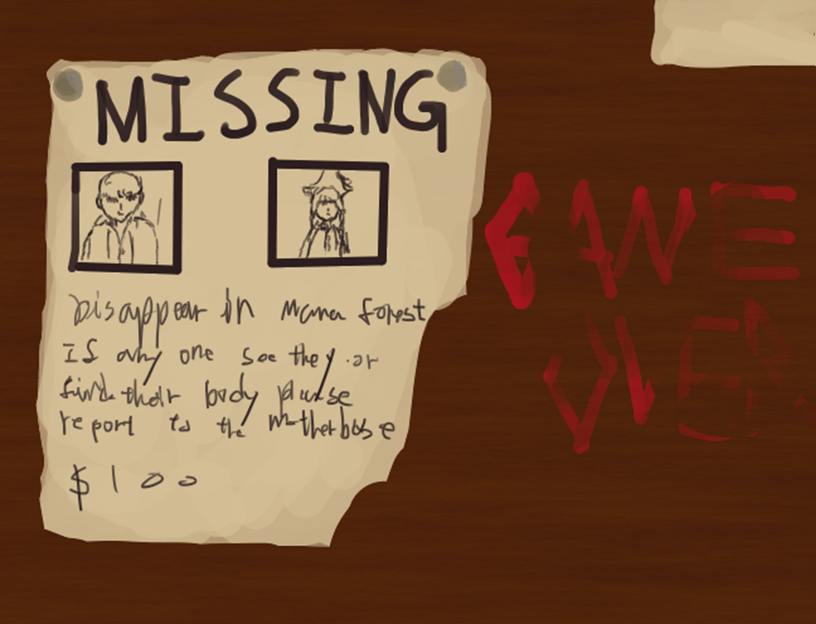 MISSING
Disappear in Mana forest
If any one see they or
find their body please
report to the Motherbase
$100
GAME
OVER